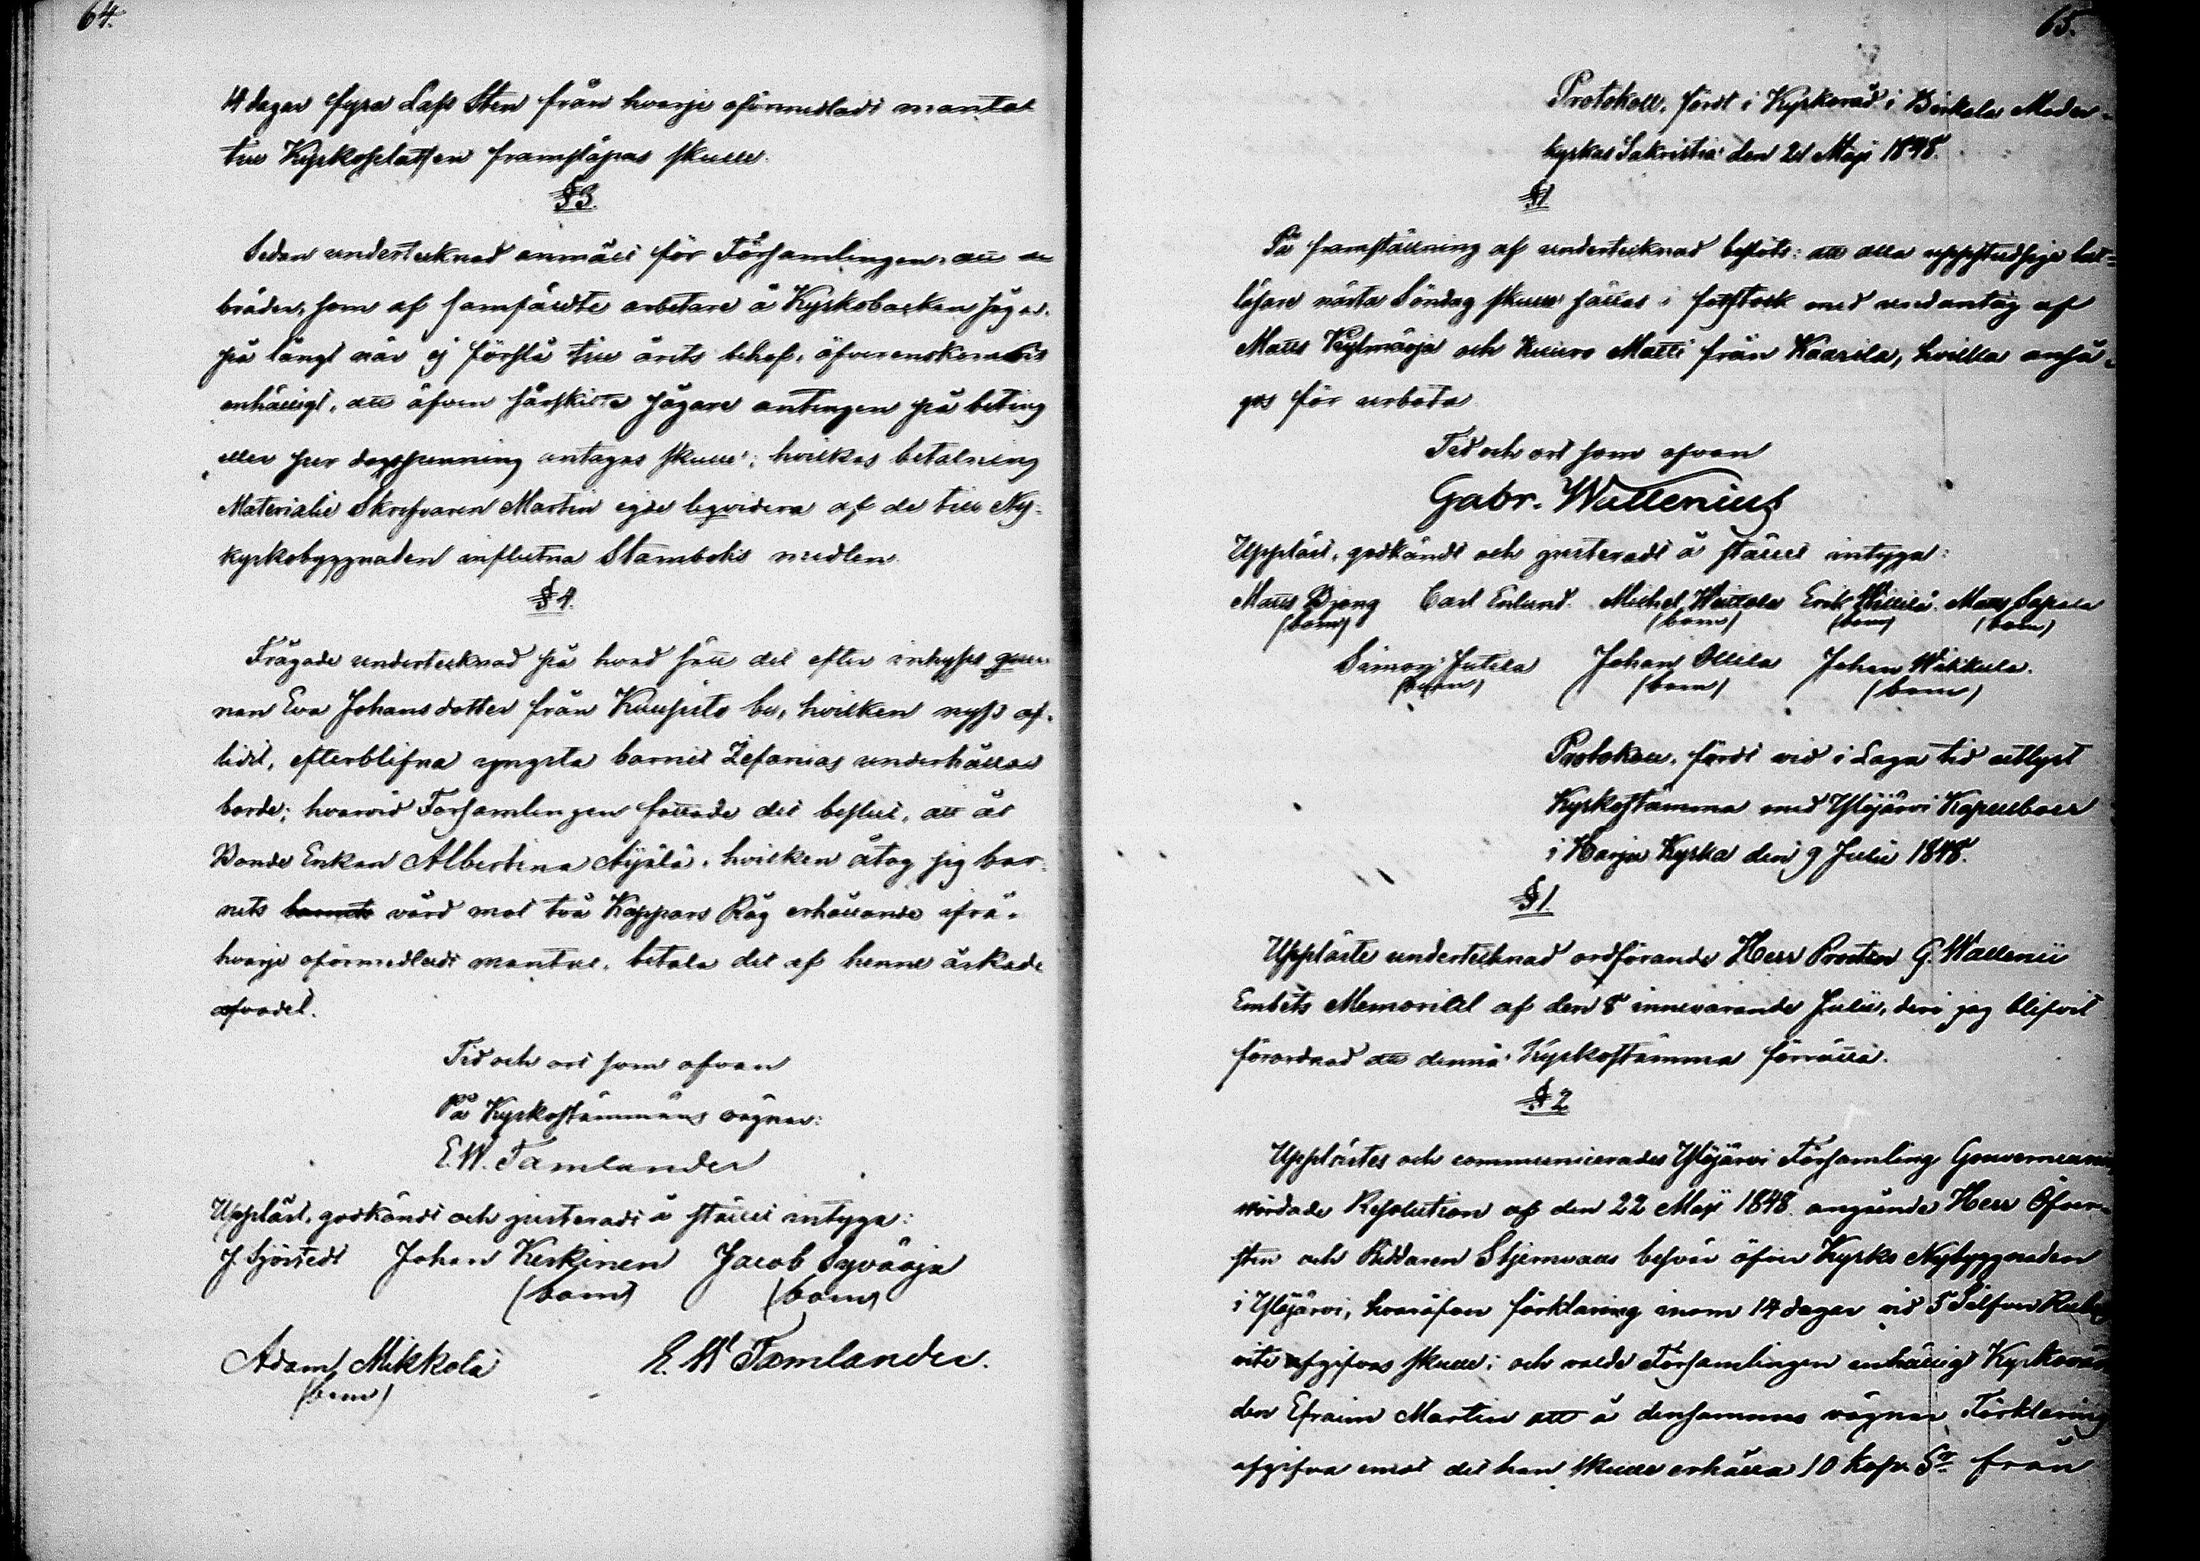 64.
14 dagar fyra Lass Sten från hvarje oförmedladt mantal
till Kyrkoplatsen framsläpas skulle.
§ 3.
Sedan undertecknad anmält för Församlingen, att de
bräder, som af samfäldte arbetare å Kyrkobacken sågas,
på långt när ej förslå till årets behof, öfverenskoms
enhälligt, att äfven särskilte sågare antingen på beting
eller per dagspenning antagas skulle; hvilkas betalning
Materialie Skrifvaren Martin egde liqvidera af de till Ny-
kyrkobyggnaden influtna Stambots medlen.
§ 4.
Frågade undertecknad på hvad sätt det efter inhyses qvin-
nan Eva Johansdotter från Kuusisto by, hvilken nyss af-
lidit, efterblifna yngsta barnet Zefanias underhållas
borde; hvarvid Församlingen fattade det beslut, att åt
Bonde Enkan Albertina Äijälä, hvilken åtog sig bar-
nets barnets vård mot två Kappars Råg erhållande ifrå-
hvarje oförmedladt mantal, betala det af henne äskade
arfvodet.
Tid och ort som ofvan
På Kyrkostämmans vägnar:
E. W. Tamlander
Uppläst, godkändt och justeradt å stället intyga:
J. Sjöstedt Johan Keskinen Jacob Syväoja
(bom) (bom)
Adam Mikkola E. W. Tamlander.
(bom)
65.
Protokoll, fördt i Kyrkoråd i Birkala Moder-
kyrkas Sakristia den 21 Maji 1848.
§ 1.
På framställning af undertecknad beslöts: att alla uppstudsige lät-
läsare nästa Söndag skulle sättas i fotstock med undantag af
Matts Kylmäoja och Kuuro Matti från Kaarila, hvilka anså-
gos för urbota
Tid och ort som ofvan
Gabr. Wallenius
Uppläst, godkändt och justeradt å stället intyga:
Matts Bjong Carl Enlund. Michel Erik Matts
(bom) (bom) (bom) (bom)
Simon Jutila Johan Ollila Johan Wäkkula.
(bom) (bom) (bom)
Protokoll, fördt vid i Laga tid utlyst
Kyrkostämma med Ylöjärvi Kapellboer
i Harju Kyrka den 9 Julii 1848.
§ 1.
Uppläste undertecknad ordförande Herr Prosten G. Wallenii
Embets Memorial af den 8 innevarande Julii, deri jag blifvit
förordnad att denna Kyrkostämma förrätta.
§ 2
Upplästes och communicerades Ylöjärvi Församling
vördade Resolution af den 22 Maji 1848 angående Herr Öfver-
sten och Riddaren Stjernvalls besvär öfver Kyrko Nybyggnaden
i Ylöjärvi, hvaröfver förklaring inom 14 dagar vid 5 Silfver
vite afgifvas skulle; och valde Församlingen enhälligt
den Efraim Martin att å densammas vägnar Förklaring
afgifva emot det han skulle erhålla 10 kop. Sr. från